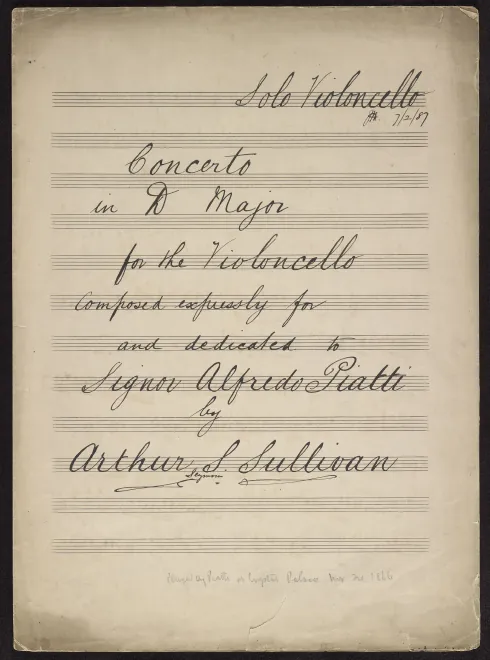 Solo Violoncello
7/2/87
Concerto
in D Major
for the Violoncello
Composed expressly for
and dedicated to
Signor Alfredo Piatti
by
Arthur S. Sullivan
Seymour
Played by Piatti at Crystal Palace Nov 24 1866